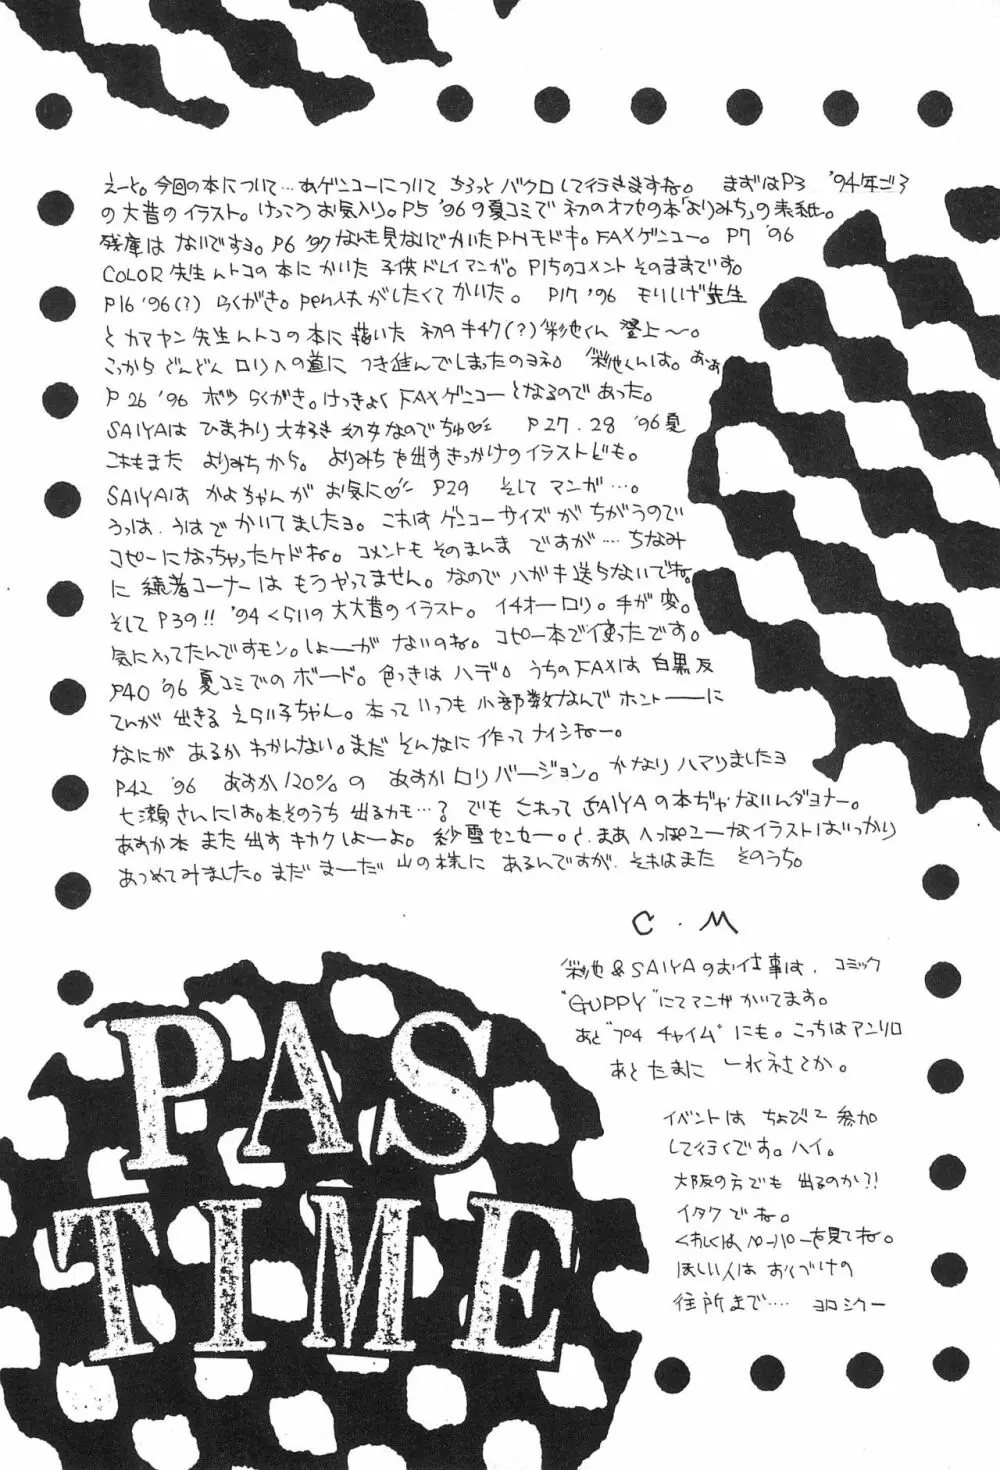 えーと。今回の本について…あゲンコーについて ちょっと バクロして行きますね。 まずはP3 '94年ごろ
の大昔のイラスト。けっこうお気入り。P5 '96の夏コミで初のオフセの本「よりみち」の表紙。
残庫は ないですヨ。P6 '97なんも見ないでかいたPHモドキ。FAXゲンコー。P7 '96
COLOR先生んトコの本に かいた 子供ドレイマンガ。P15のコメント そのままです。
P16 '96(?) らくがき。pen入れがしたくてかいた。 P17 '96 もりしげ先生
と カマヤン先生んトコの本に描いた 初のキチク(?)彩池くん 登上〜。
こっから どんどん ロリへの道に つき進んでしまったのヨネ。彩池くんは。あぁ
P26 '96 ボツ らくがき。けっきょく FAXゲンコーとなるのであった。
SAIYAは ひまわり大好き 幼女なのでちゅ♡ P27.28 '96夏
これもまた よりみちから。よりみちを出すきっかけのイラストども。
SAIYAは かよちゃんが お気に♡ P29 そして マンガ…。
うっは、うはで かいてましたヨ。これは ゲンコーサイズが ちがうので
コピーになっちゃったケドね。コメントも そのまんま ですが…ちなみ
に 読者コーナーは もうやってません。なので ハガキ送らないでね。
そして P39!! '94くらいの大大昔のイラスト。イチオーロリ。手が変。
気に入ってたんですモン。しょーがないのね。コピー本で使ったです。
P40 '96 夏コミでのボード。色つきはハデ。うちのFAXは 白黒反
てんが 出きる えらい子ちゃん。本って いっつも 小部数なんで ホントーーに
なにが あるか わかんない。まだ そんなに 作って ナイシねー。
P42 '96 あすか120%の あすかロリバージョン。かなり ハマりましたヨ
七瀬さんには。本そのうち 出るカモ…? でも これって SAIYAの本ぢゃないんダヨナー。
あすか本 また 出す キカクしよーよ。紗雪センセー。と、まあ へっぽコーなイラストばっかり
あつめてみました。まだ まーだ 山の様に あるんですが、それはまた そのうち。
C.M
彩池&SAIYAのお仕事は、コミック
"GUPPY"にてマンガ かいてます。
あと"プチ チャイム"にも。こっちはアンソロ
あと たまに 一水社とか。
イベントは ちょびっと参加
して行くです。ハイ。
大阪の方でも 出るのか?!
イタクでね。
くわしくは ペーパーを見てね。
ほしい人は おくづけの
住所まで…. ヨロシクー
PAS
TIME